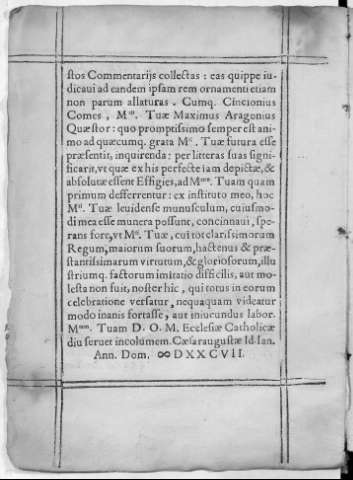 stos Commentarijs collectas : eas quippe iu-
dicaui ad eandem ipsam rem ornamenti etiam
non parum allaturas . Cumq. Cincionius
Comes , M.ᵗⁱˢ. Tuæ Maximus Aragonius
Quæstor : quo promptissimo semper est ani-
mo ad quæcumq. grata Mᵗⁱ. Tuæ futura esse
præsentit, inquirenda : per litteras suas signi-
ficarit, vt quæ ex his perfecte iam depictæ, &
absolutæ essent Effigies, ad Mᵗᵉᵐ. Tuam quam
primum defferrentur : ex instituto meo, hoc
Mᵗⁱ. Tuæ leuidense munusculum, cuiusmo-
di mea esse munera possunt, concinnaui, spe-
rans fore, vt Mᵗⁱ. Tuæ, cui tot clarissimorum
Regum, maiorum suorum, hactenus & præ-
stantissimarum virtutum, & gloriosorum, illu
striumq. factorum imitatio difficilis, aut mo-
lesta non fuit, noster hic , qui totus in eorum
celebratione versatur, nequaquam videatur
modo inanis fortasse , aut iniucundus labor.
Mᵗᵉᵐ. Tuam D. O. M. Ecclesiæ Catholicæ
diu seruet incolumem. Cæsaraugustæ Id. Ian.
Ann. Dom. ∞ D X X C V I I.